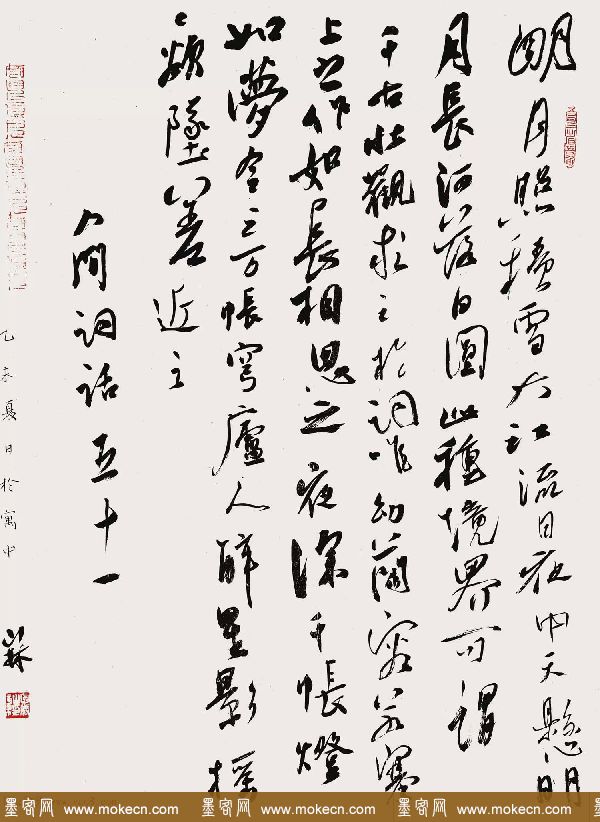 明月照積雪大江流日夜中天懸明
月長河落日圓此種境界可謂
千古壯觀求之於詞唯納蘭容若塞
上之作如長相思之夜深千帳燈
如夢令之万帳穹廬人醉星影搖
〻欲墜差近之
人間詞話五十一
乙未夏日於寓中
墨客网 www.mokecn.com 墨客网 www.mokecn.com 墨客网 www.mokecn.com